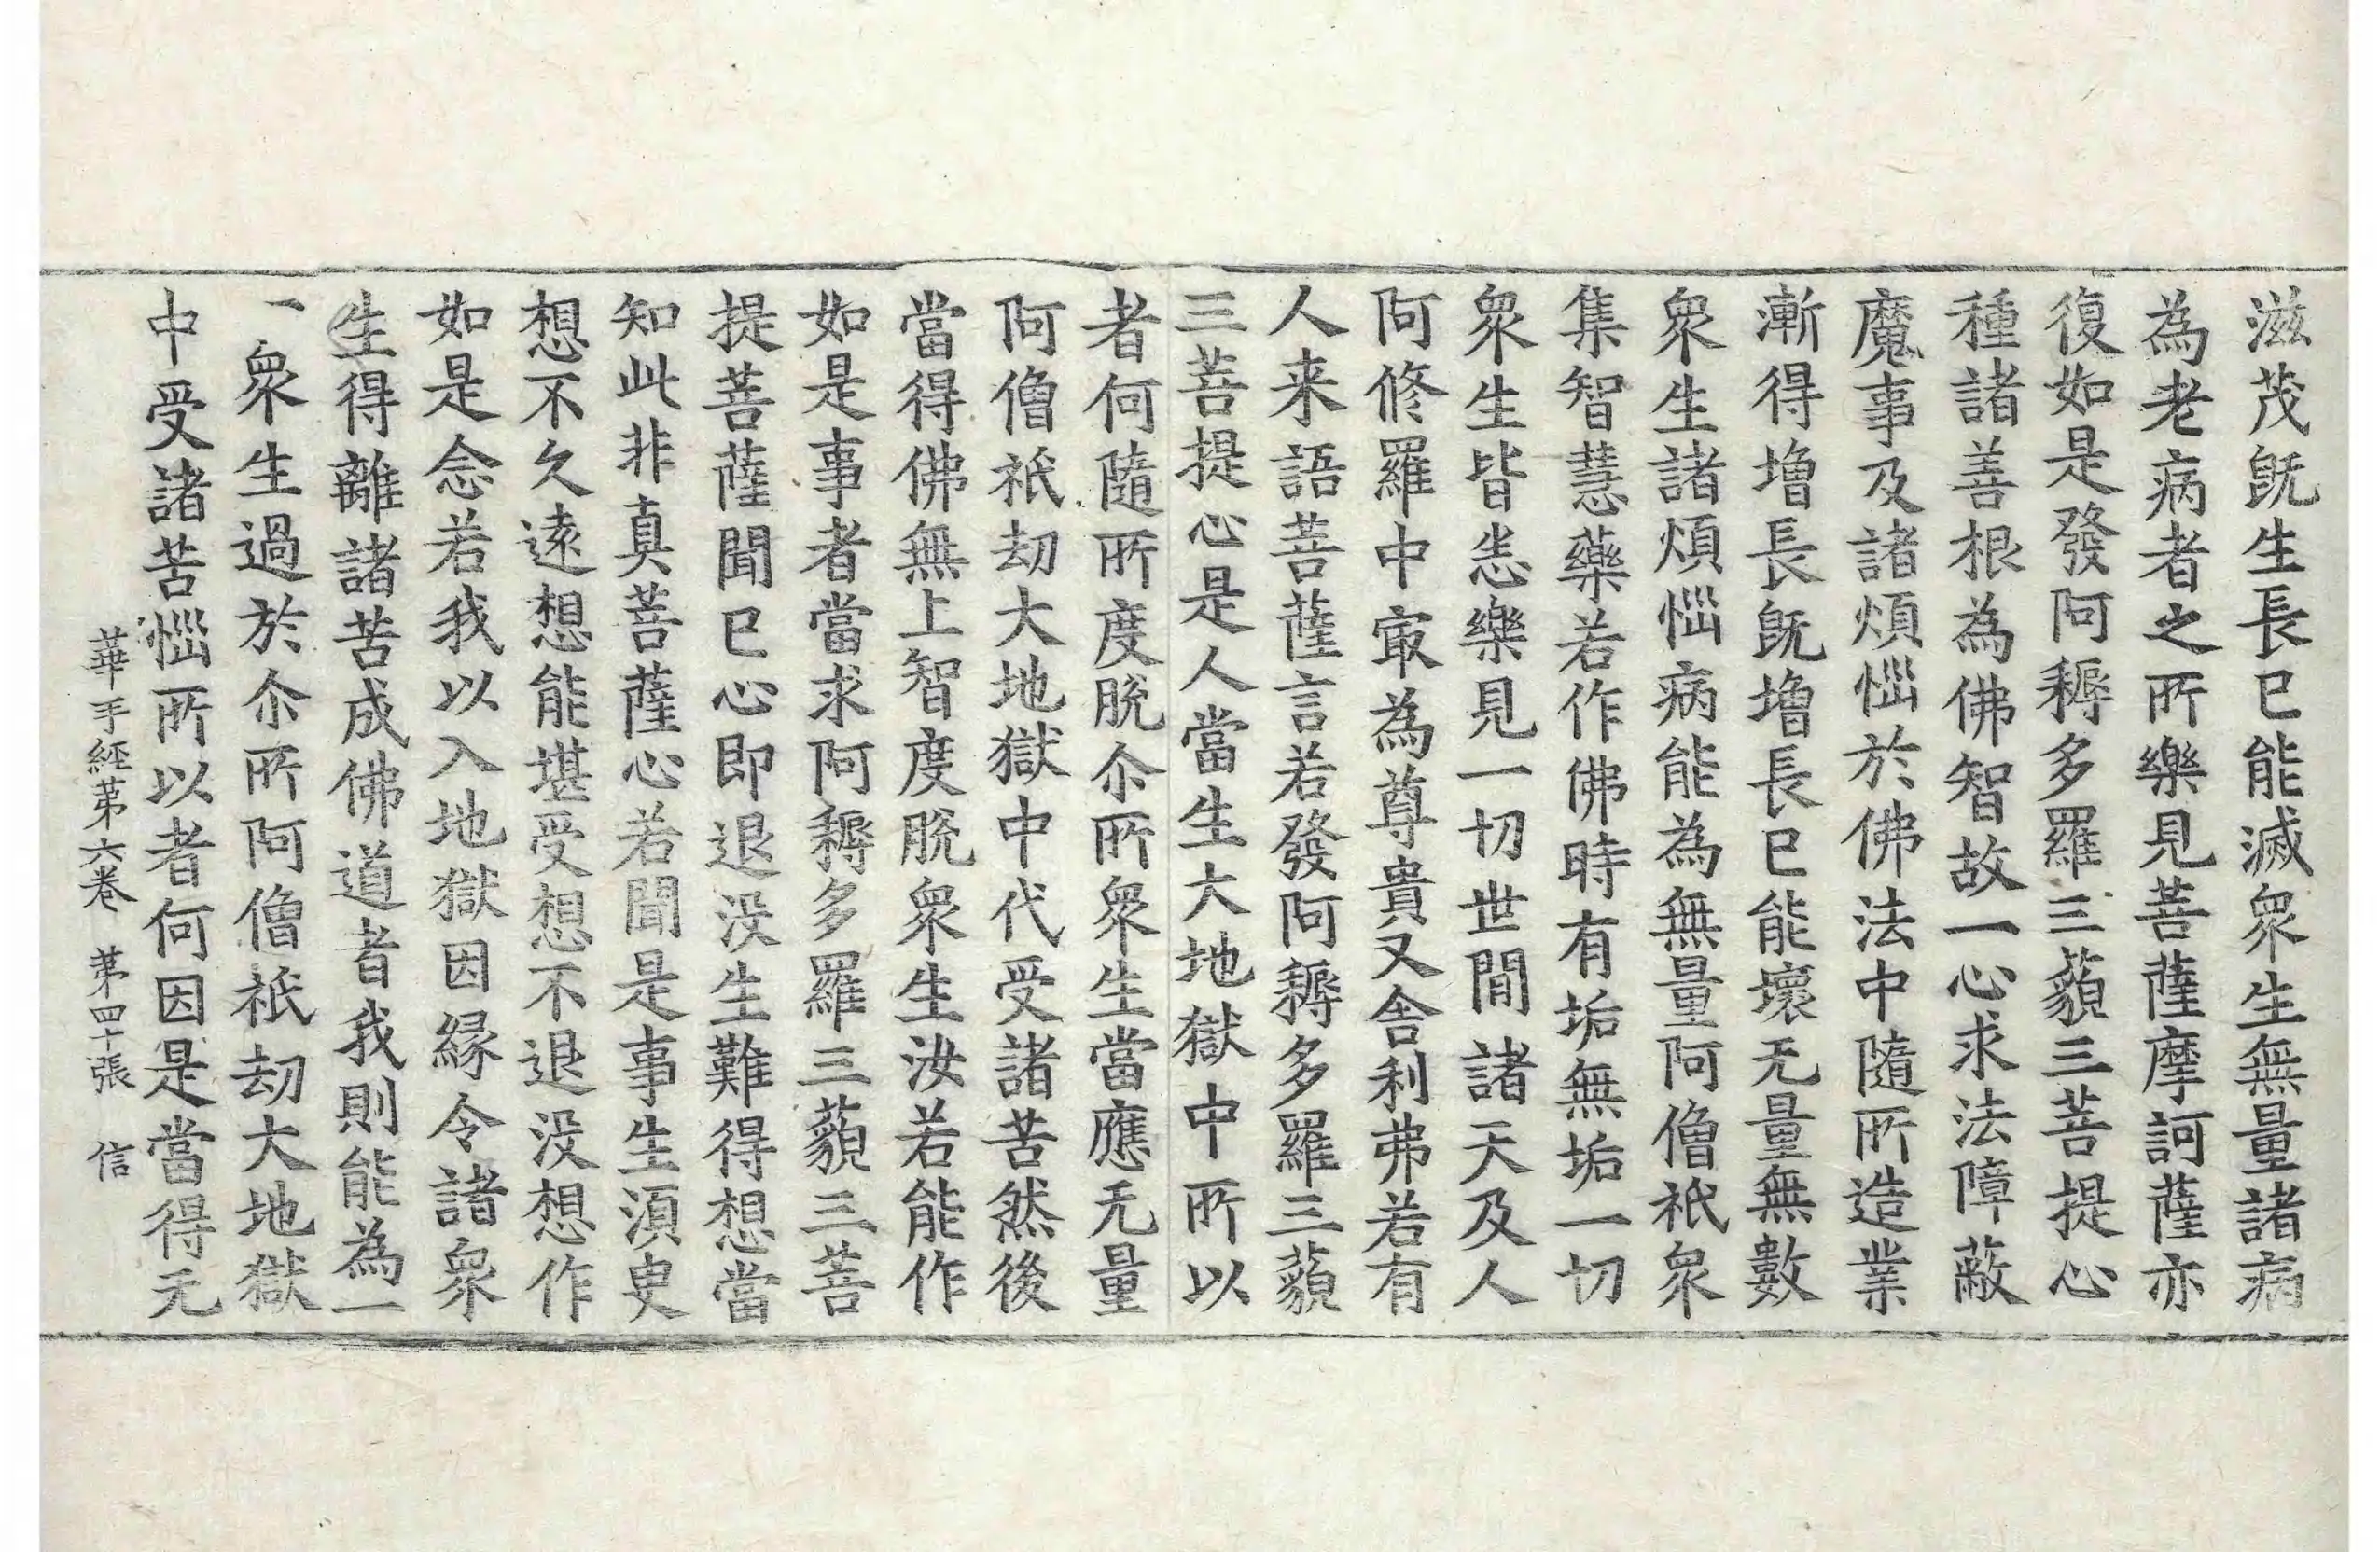 滋茂旣生長已能滅衆生無量諸病
為老病者之所樂見菩薩摩訶薩亦
復如是發阿耨多羅三藐三菩提心
種諸善根為佛智故一心求法障蔽
魔事及諸煩惱於佛法中隨所造業
漸得增長旣增長已能壞无量無數
衆生諸煩惱病能為無量阿僧祇衆
集智慧藥若作佛時有垢無垢一切
衆生皆悉樂見一切世間諸天及人
阿修羅中㝡為尊貴又舍利弗若有
人来語菩薩言若發阿耨多羅三藐
三菩提心是人當生大地獄中所以
者何隨所度脫尒所衆生當應无量
阿僧祇劫大地獄中代受諸苦然後
當得佛無上智度脫衆生汝若能作
如是事者當求阿耨多羅三藐三菩
提菩薩聞已心即退没生難得想當
知此非真菩薩心若聞是事生湏臾
想不久遠想能堪受想不退没想作
如是念若我以入地獄因緣令諸衆
生得離諸苦成佛道者我則能為一
一衆生過於尒所阿僧祇劫大地獄
中受諸苦惱所以者何因是當得无
華手經第六卷 第四十張 信